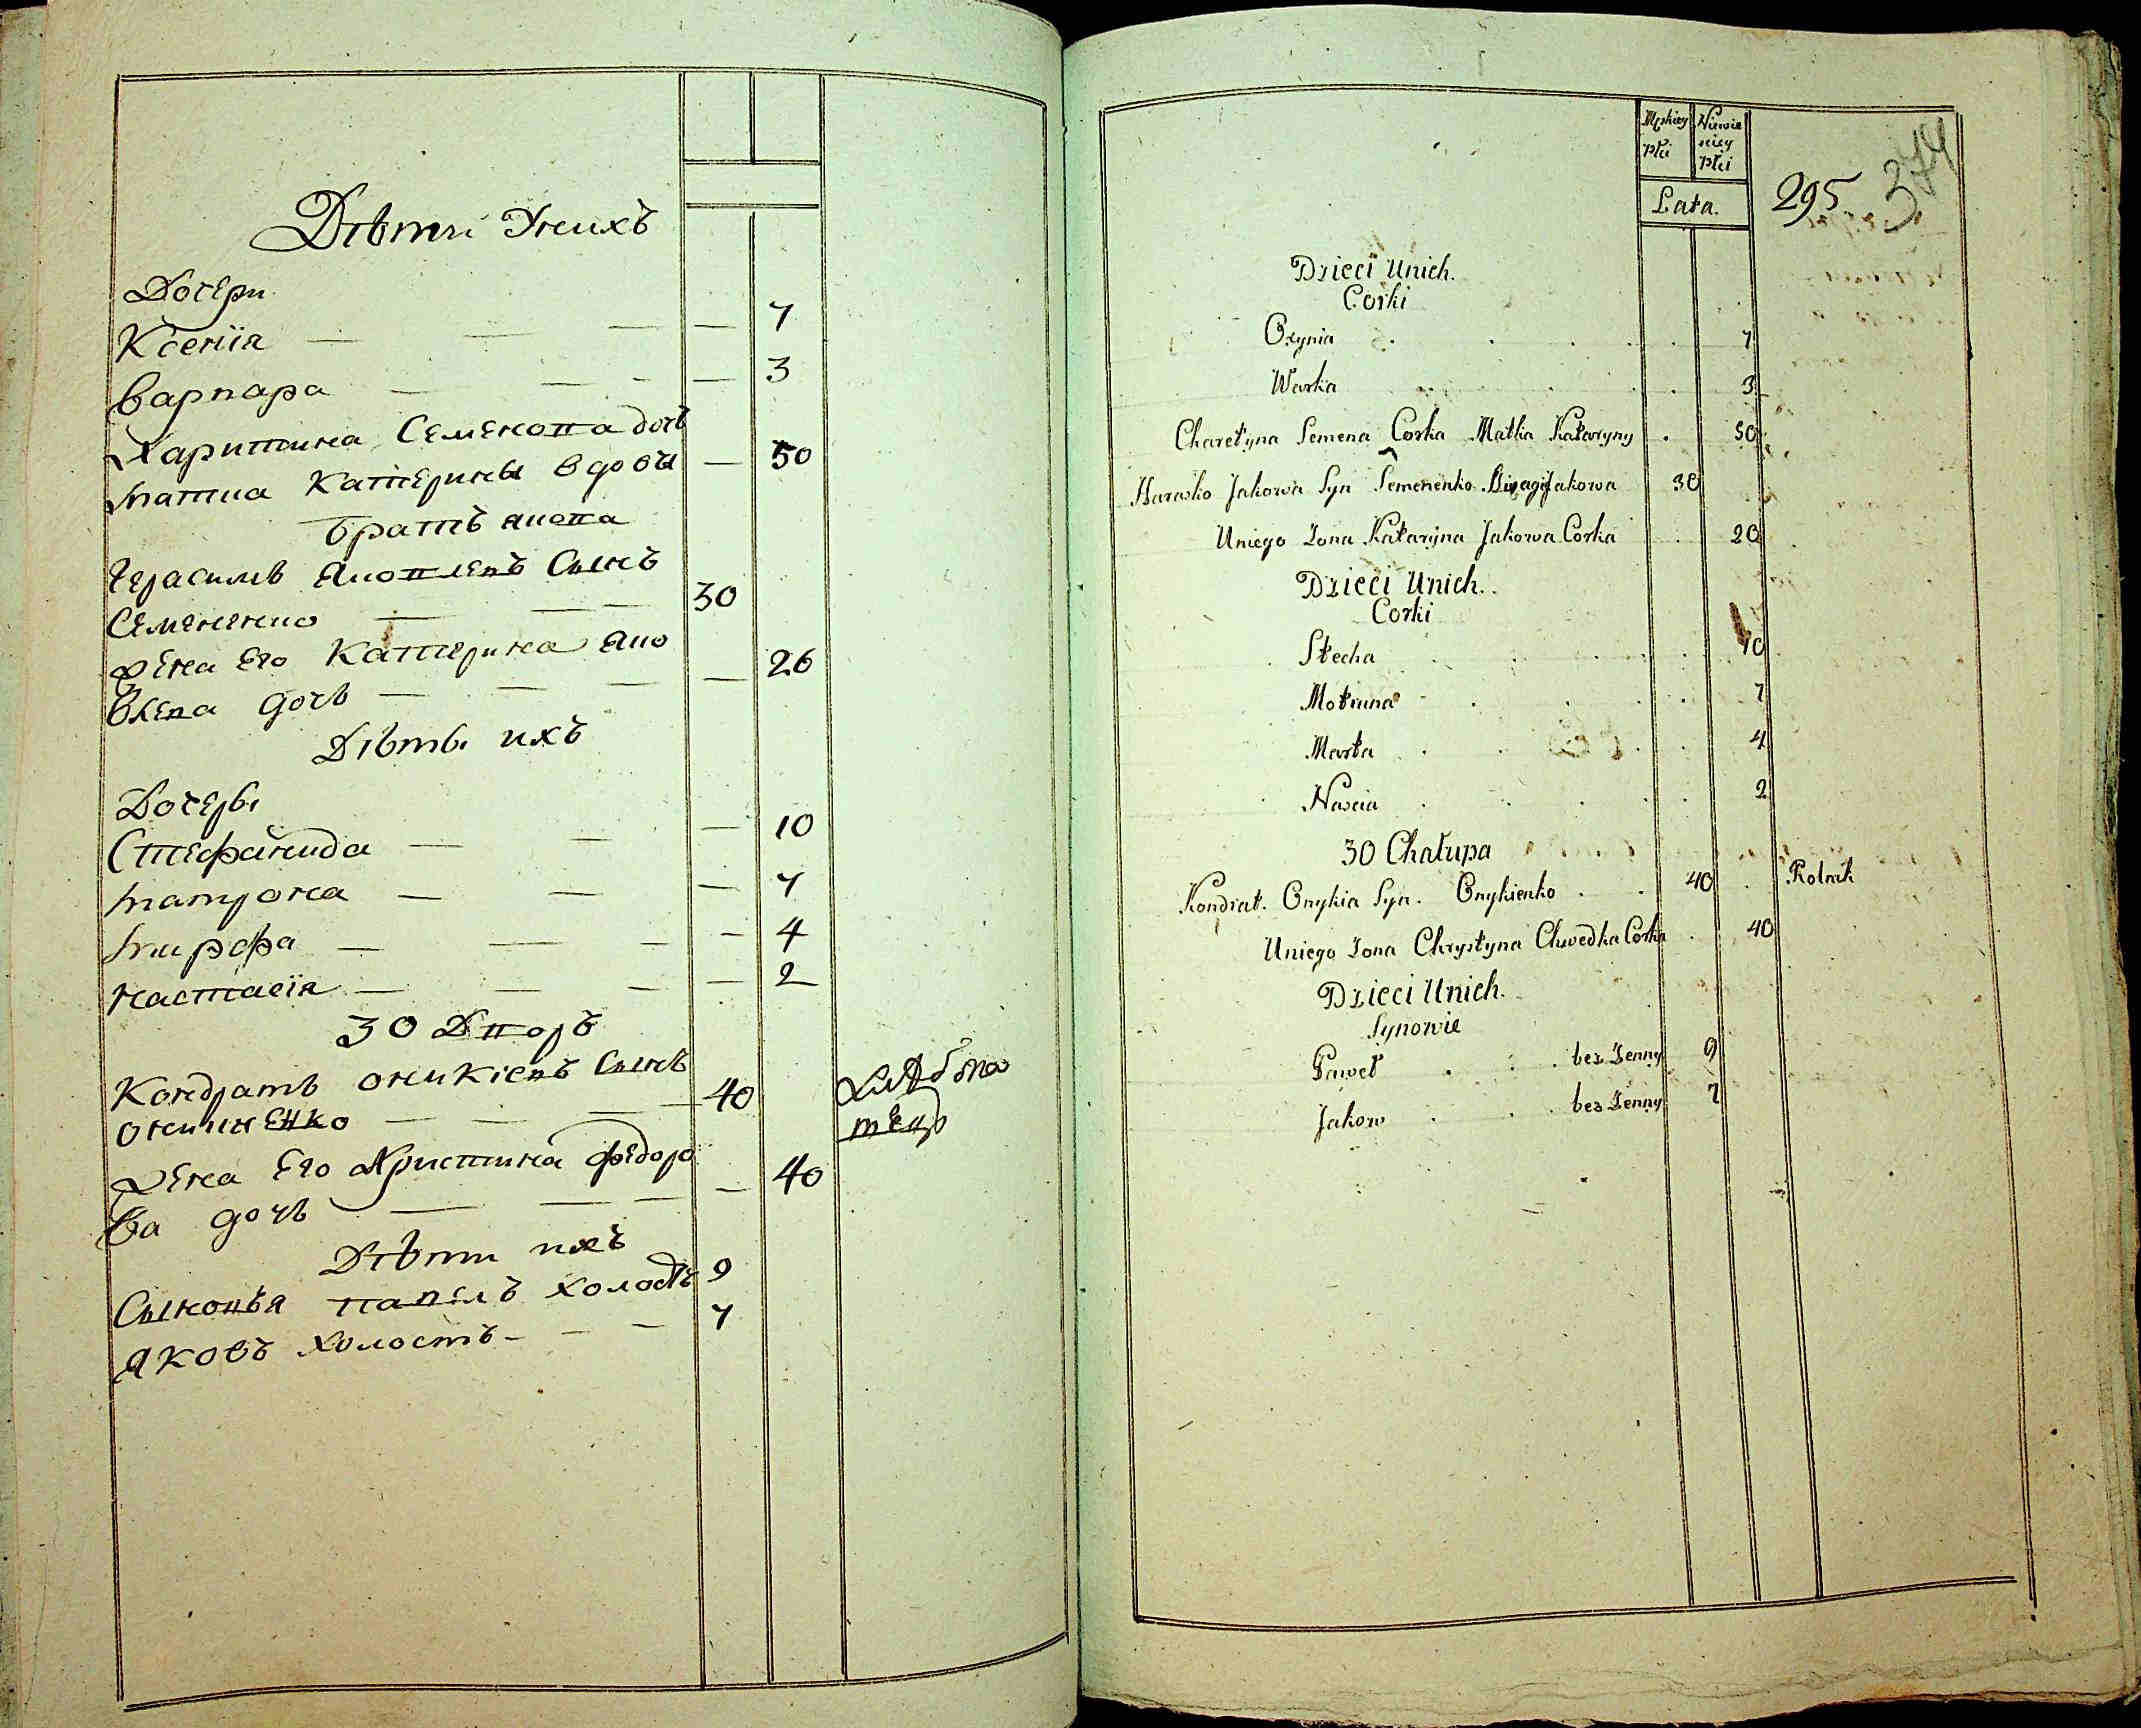 Дѣти Унихъ
Дочери
Ксенія — — — — 7
Варвара — — — — 3
Харитина Семенова дочь
матка Катерины вдовы — 50
Братъ якова
Герасимъ Яковлевъ Сынъ
Семененко — — — 30
Жена Его Катерина Яко
влева дочь — — — — 26
Дѣти ихъ
Дочери
Стефанида — — — 10
матрона — — — 7
марфа — — — — 4
настасія — — — — 2
30 Дворъ
Кондратъ оникіевъ Сынъ
оникиенко — — — 40
Жена Его Христина федоро
ва дочь — — — — 40
Дѣти ихъ
Сыновья павелъ холостъ 9
яковъ холостъ — — — 7
Męskiey Płci
Niewie
sciey
Płci
Lata.
295
374
Dzieci Unich.
Corki
Oxynia . . . . . 7
Warka . . . 3
Charetyna Semena Corka Matka Kataryny . 50
Harasko Jakowa Syn Semenenko Jakowa 30
Uniego Zona Kataryna Jakowa Corka . 20
Dzieci Unich.
Corki
Stecha . . . . 10
Motruna . . . . 7
Marta . . . . 4
Nascia . . . . 2
30 Chałupa
Kondrat. Onykia Syn. Onykienko . . 40 . Rolnik
Uniego Zona Chrystyna Chwedka Corka . 40
Dzieci Unich.
Synowie
Paweł . . . bez Zenny 9
Jakow . . . bez Zenny 7